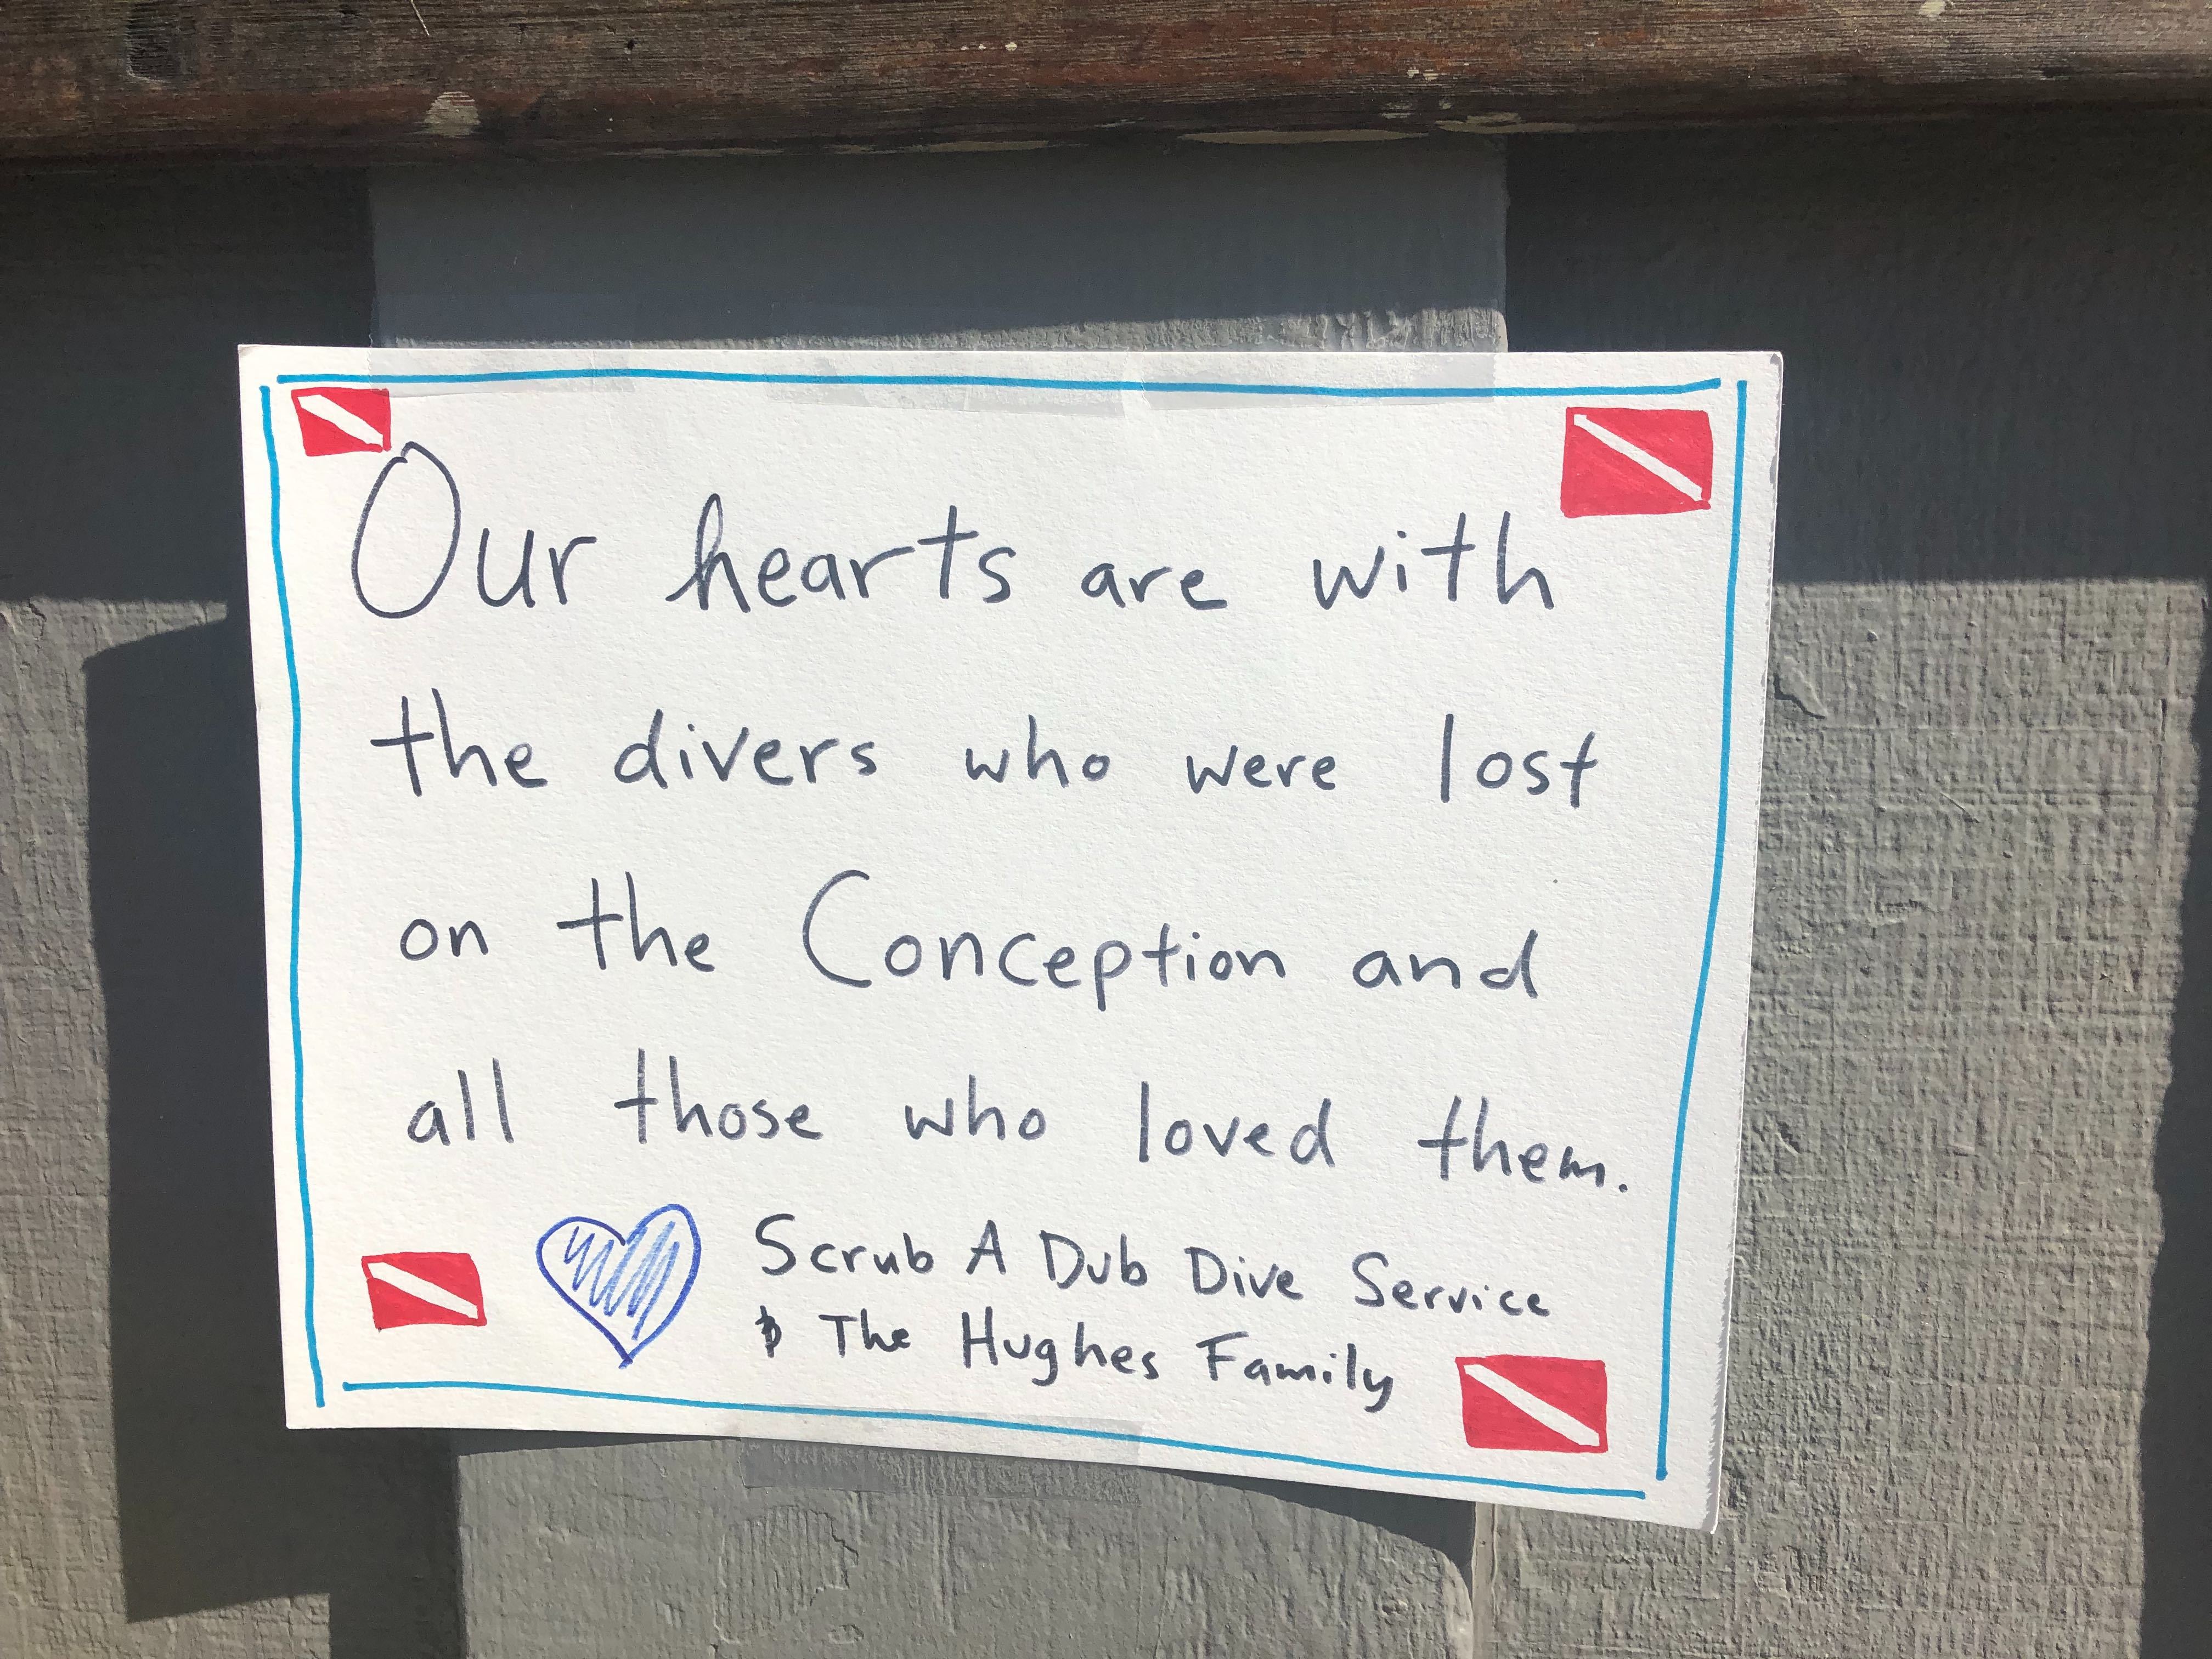 Our hearts are with
the divers who were lost
on the Conception and
all those who loved them.
Scrub A Dub Dive Service
& The Hughes Family